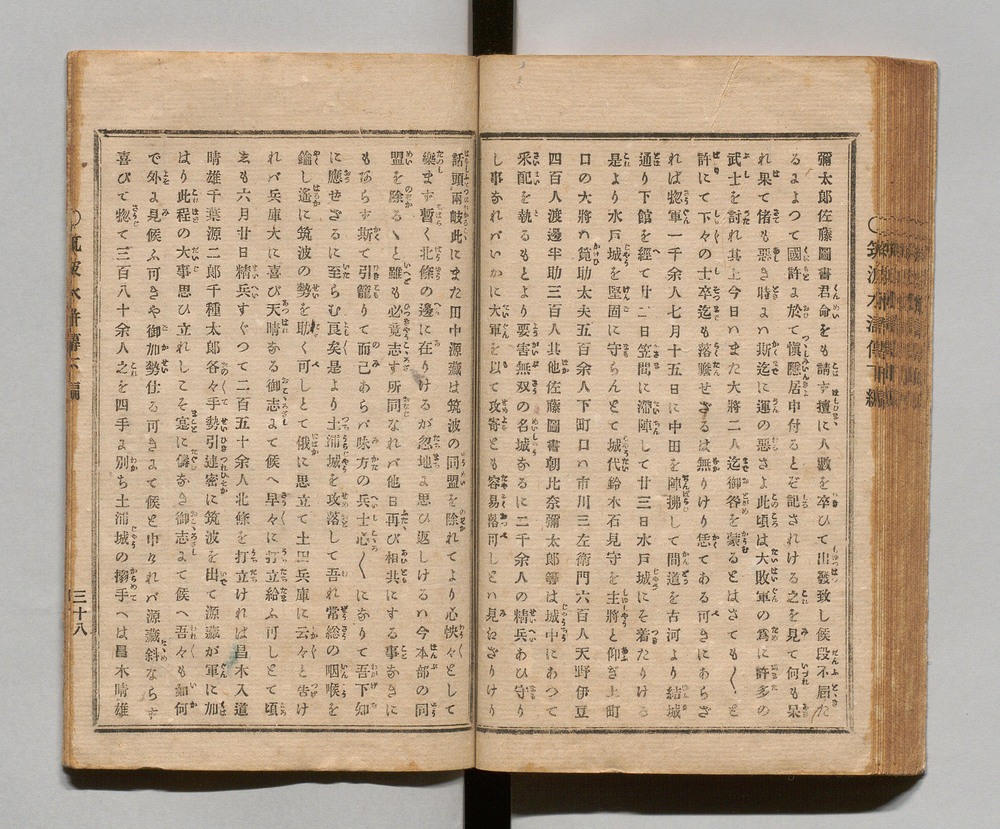 彌太郎佐藤圖書君命をも請ず擅に人數を卒ひて出發致し候段不屆た
るよつて國許よ於て愼隱居申付るとぞ記されける之を見て何も呆
れ果て偖も惡き時よハ斯迄に運の惡さよ此頃は大敗軍の爲に許多の
武士を討れ其上今日ハまた大將二人迄御咎を蒙るとはさても〳〵と
許にて下々の士卒迄も落膽せざるは無りけり恁てある可きにあらざ
れば惣軍一千余人七月十五日に中田を陣拂して間道を古河より結城
通り下館を經て廿二日笠間に滯陣して廿三日水戸城にそ着たりける
是より水戸城を堅固に守らんとて城代鈴木石見守を主將と仰ぎ上町
口の大將ハ筧助太夫五百余人下町口ハ市川三左衛門六百人天野伊豆
四百人渡邊半助三百人其他佐藤圖書朝比奈彌太郎等は城中にあつて
釆配を執るもとより要害無双の名城なるに二千余人の精兵あひ守り
し事なれバいかに大軍を以て攻寄とも容易落可しとハ見ねざりけり
話頭兩鼓此にまた田中源藏は筑波の同盟を除れてより心怏々として
樂ます暫く北條の邊に在りけるが忽地よ思ひ返しけるハ今本部の同
盟を除るゝと雖も必竟志す所同なれバ他日再び相共にする事なきに
もならす斯て引籠りて而己あらバ味方の兵士心〳〵になりて吾下知
に應せざるに至らむ是より土浦城を攻落して吾れ常総の咽喉を
鑰し遙に筑波の勢を助く可しとて俄に思立て土田兵庫に云々と告け
れバ兵庫大に喜び天晴なる御志よて候へ早々に打立給ふ可しとて頃
も六月廿日精兵すぐつて二百五十余人北條を打立ければ昌木入道
晴雄千葉源二郎千種太郎各々手勢引連密に筑波を出て源藏が軍に加
はり此程の大事思ひ立れしこそ寔に儔なき御志よて候へ吾々も如何
で外よ見候ふ可きや御加勢仕る可きよて候と申けれバ源藏斜ならす
喜びて惣て三百八十余人之を四手よ別ち土浦城の搦手へは昌木晴雄
三十八